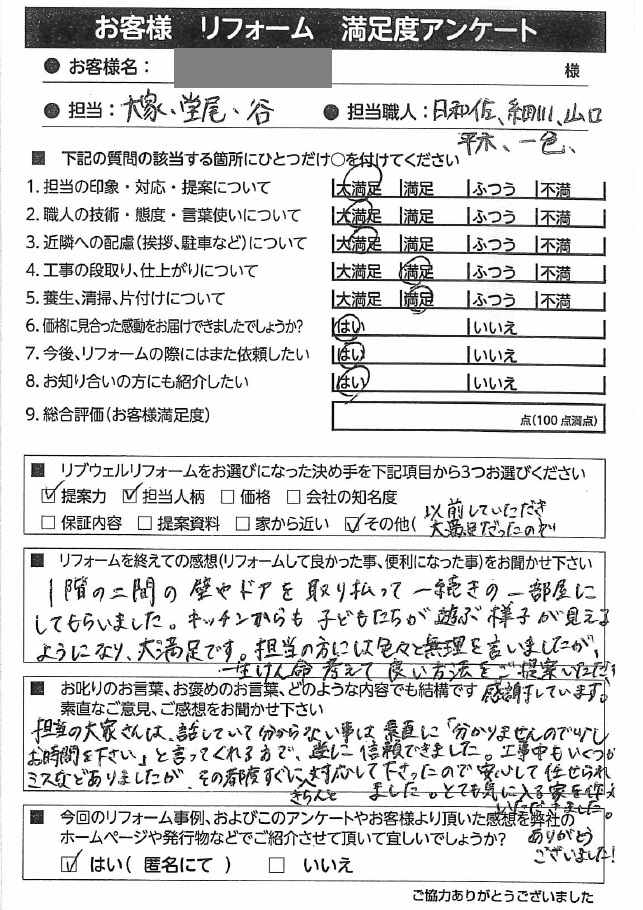 お客様 リフォーム 満足度アンケート
● お客様名： 様
● 担当：大家、堂尾、谷 ● 担当職人：日和佐、細川、山口
平木、一色、
■ 下記の質問の該当する箇所にひとつだけ○を付けてください
1. 担当の印象・対応・提案について 大満足 満足 ふつう 不満
2. 職人の技術・態度・言葉使いについて 大満足 満足 ふつう 不満
3. 近隣への配慮(挨拶、駐車など)について 大満足 満足 ふつう 不満
4. 工事の段取り、仕上がりについて 大満足 満足 ふつう 不満
5. 養生、清掃、片付けについて 大満足 満足 ふつう 不満
6. 価格に見合った感動をお届けできましたでしょうか? はい いいえ
7. 今後、リフォームの際にはまた依頼したい はい いいえ
8. お知り合いの方にも紹介したい はい いいえ
9. 総合評価(お客様満足度) 点(100点満点)
■ リブウェルリフォームをお選びになった決め手を下記項目から3つお選びください
☑ 提案力 ☑ 担当人柄 □ 価格 □ 会社の知名度
□ 保証内容 □ 提案資料 □ 家から近い ☑ その他( 以前していただき
大満足だったので
■ リフォームを終えての感想(リフォームして良かった事、便利になった事)をお聞かせ下さい
1階の二間の壁やドアを取り払って一続きの一部屋に
してもらいました。キッチンからも子どもたちが遊ぶ様子が見える
ようになり、大満足です。担当の方には色々と無理を言いましたが、
一生けん命考えて良い方法をご提案いただき
感謝しています。
■ お叱りのお言葉、お褒めのお言葉、どのような内容でも結構です
素直なご意見、ご感想をお聞かせ下さい
担当の大家さんは、話していて分からない事は素直に「分かりませんので少し
お時間を下さい」と言ってくれる方で、逆に信頼できました。工事中もいくつか
ミスなどありましたが、その都度すぐに対応して下さったので安心して任せられ
きちんと ました。とても気に入る家を作って
いただきました。
ありがとう
ございました!
■ 今回のリフォーム事例、およびこのアンケートやお客様より頂いた感想を弊社の
ホームページや発行物などでご紹介させて頂いて宜しいでしょうか?
☑ はい( 匿名にて ) □ いいえ
ご協力ありがとうございました